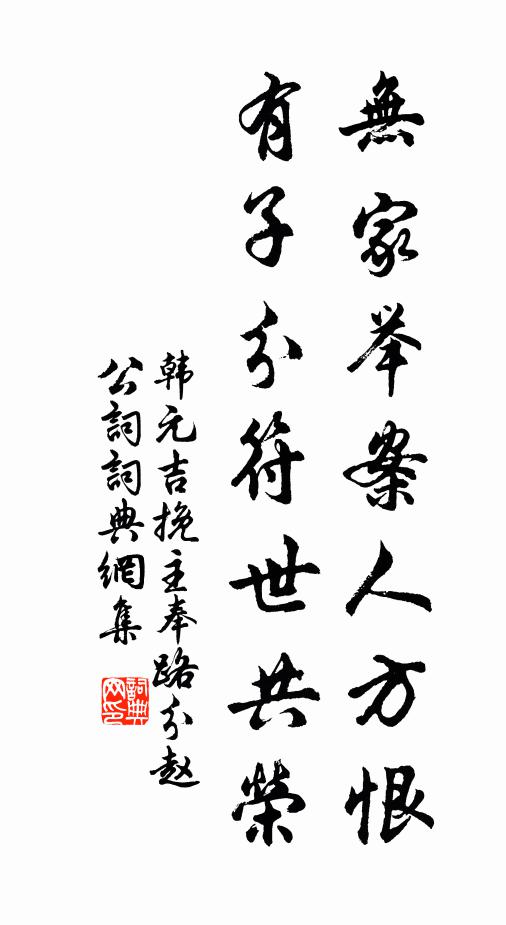 無家举案人方恨
有子分符世共榮
韩元吉挽主奉路分赵
公詞詞典網集
詞典
网印